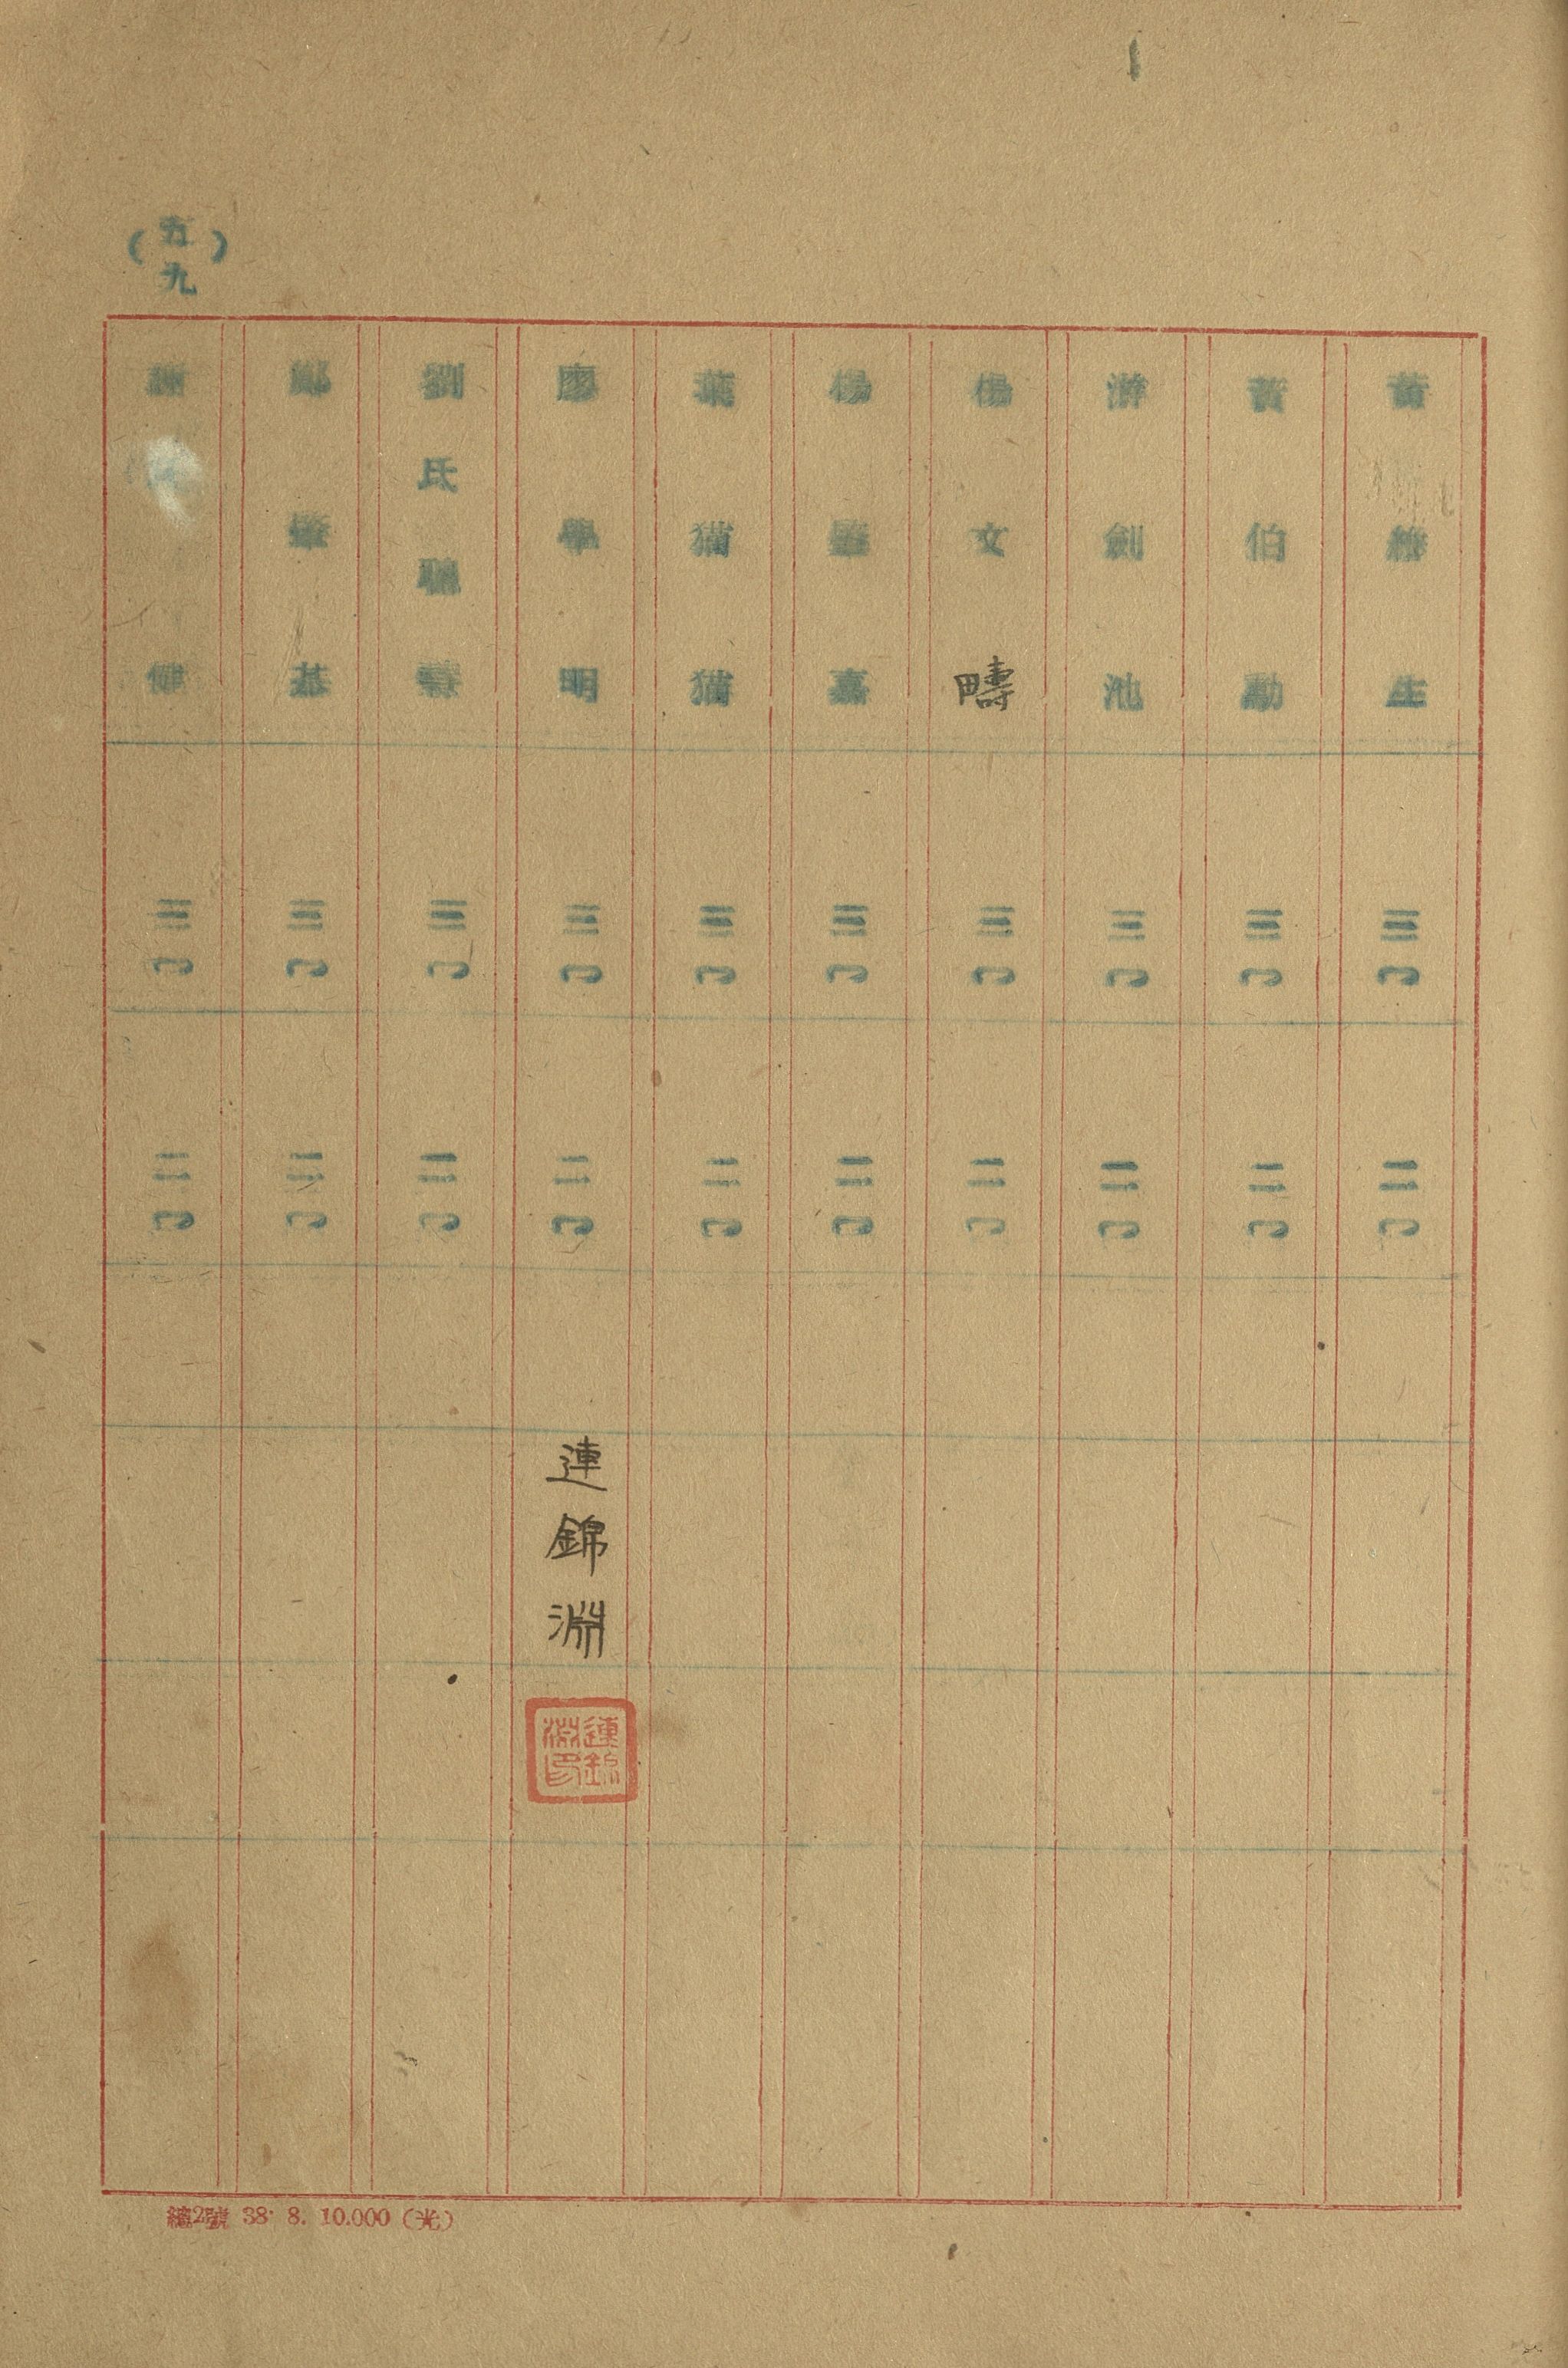 黃
生
黃伯勳
游劍池
楊文疇
楊
嘉
葉猫猫
廖學明
連錦淵
連錦淵印
劉氏聰
鄭肇基
謝
健
三〇 三〇 三〇 三〇 三〇 三〇 三〇 三〇 三〇 三〇
二〇 二〇 二〇 二〇 二〇 二〇 二〇 二〇 二〇 二〇
(五九)
總2號 38. 8. 10.000 (光)